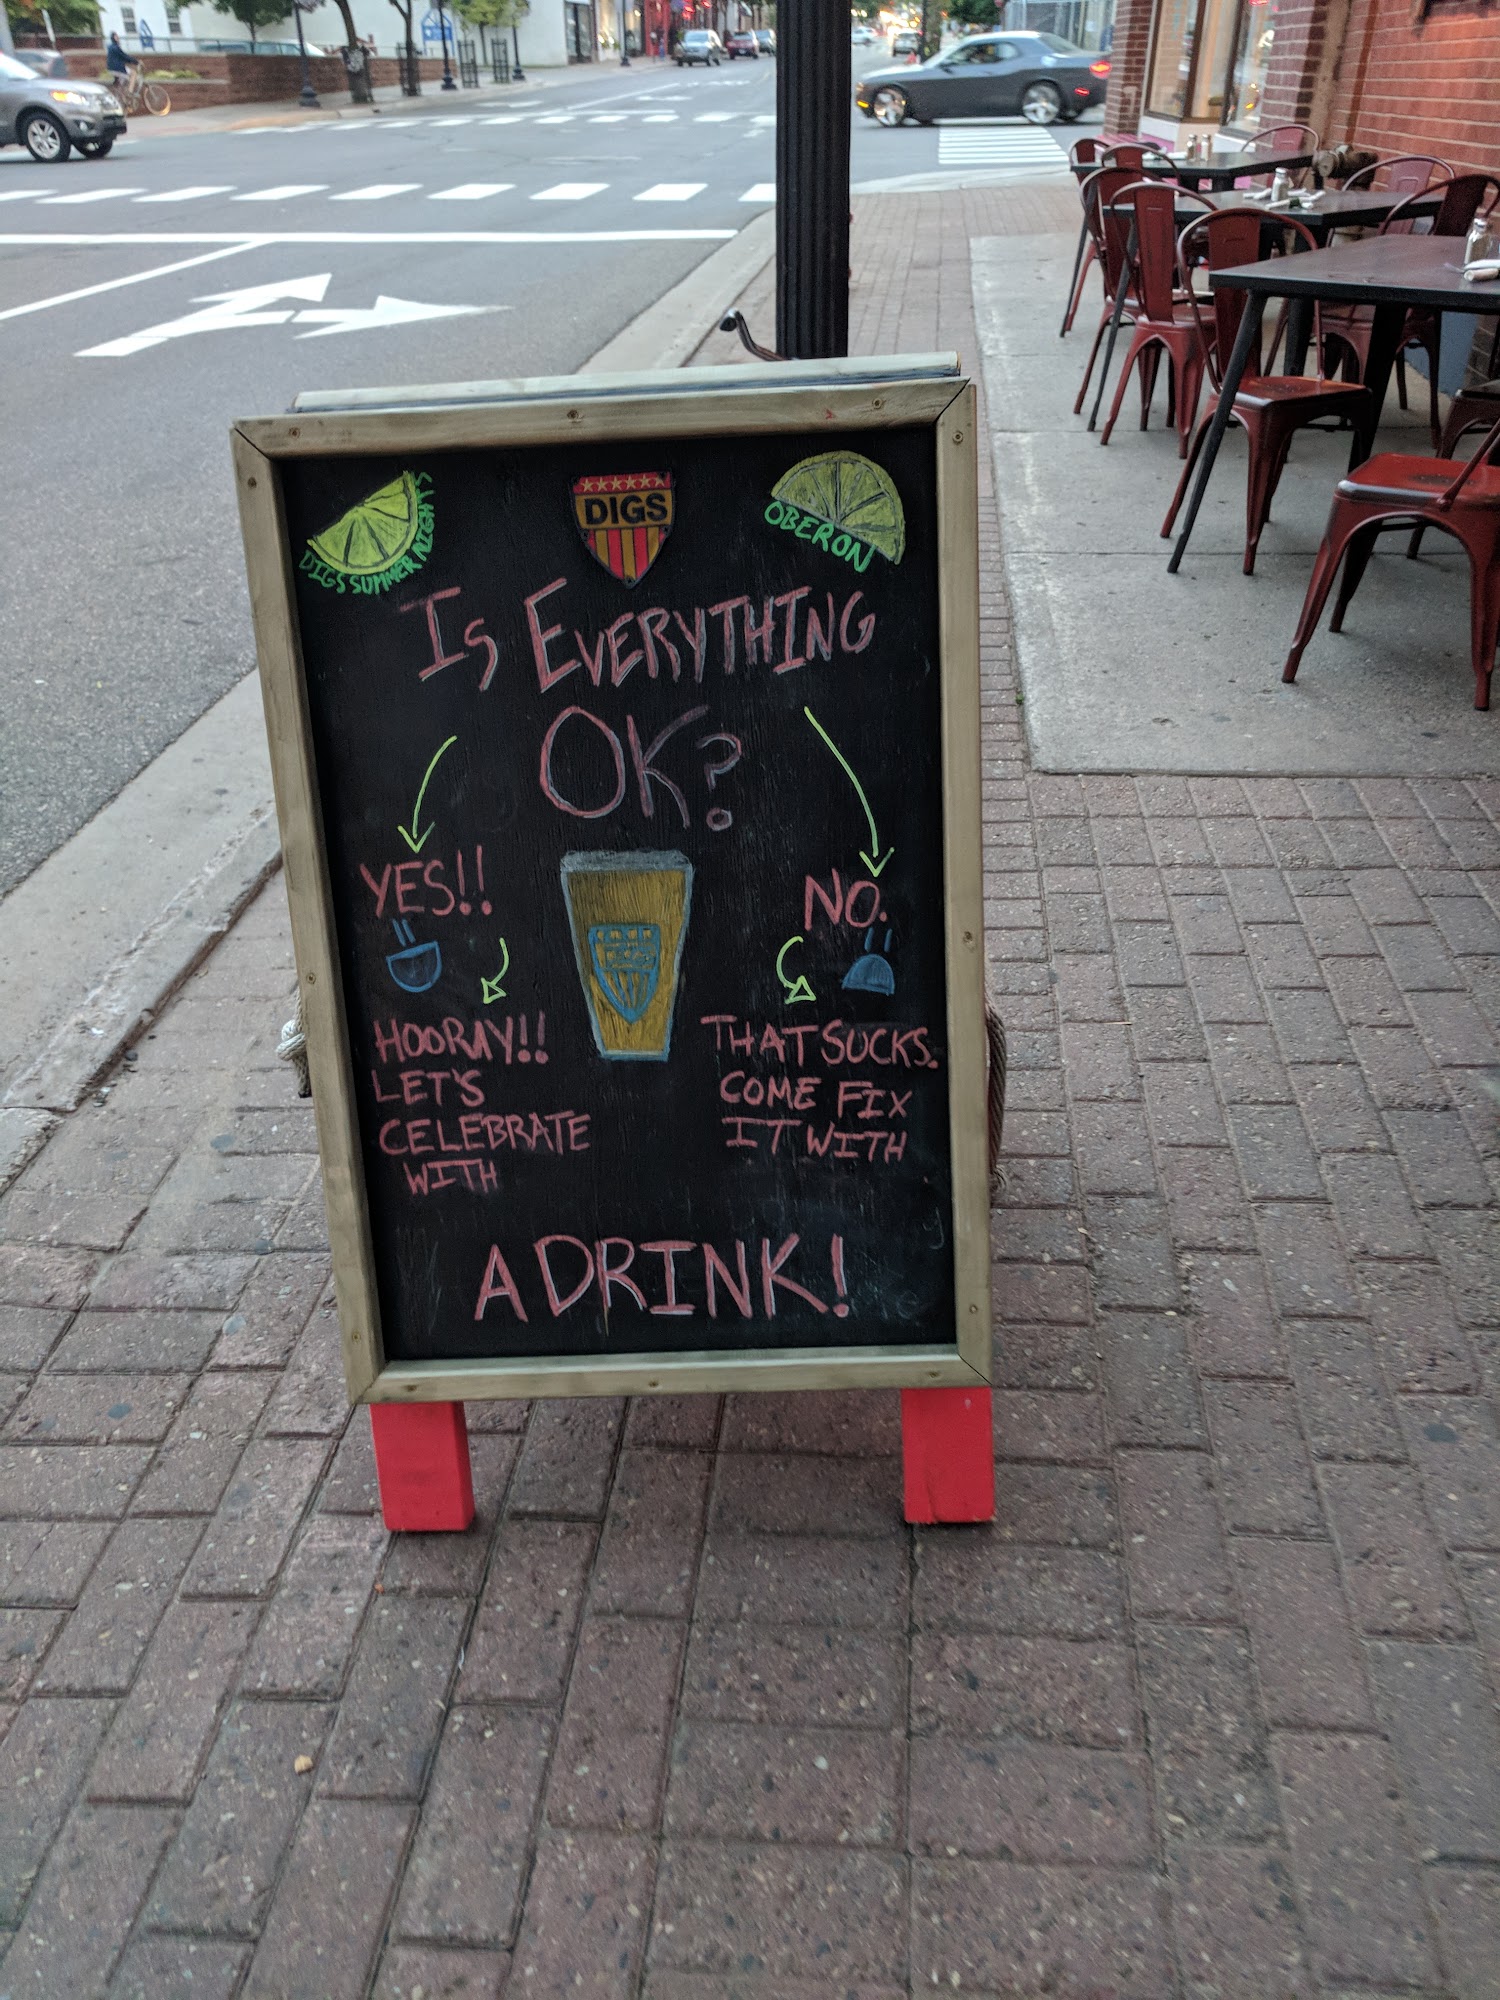 DIGS SUMMER NIGHTS
DIGS
OBERON
IS EVERYTHING
OK?
YES!!
HOORAY!!
LET'S
CELEBRATE
WITH
NO.
THAT SUCKS.
COME FIX
IT WITH
A DRINK!